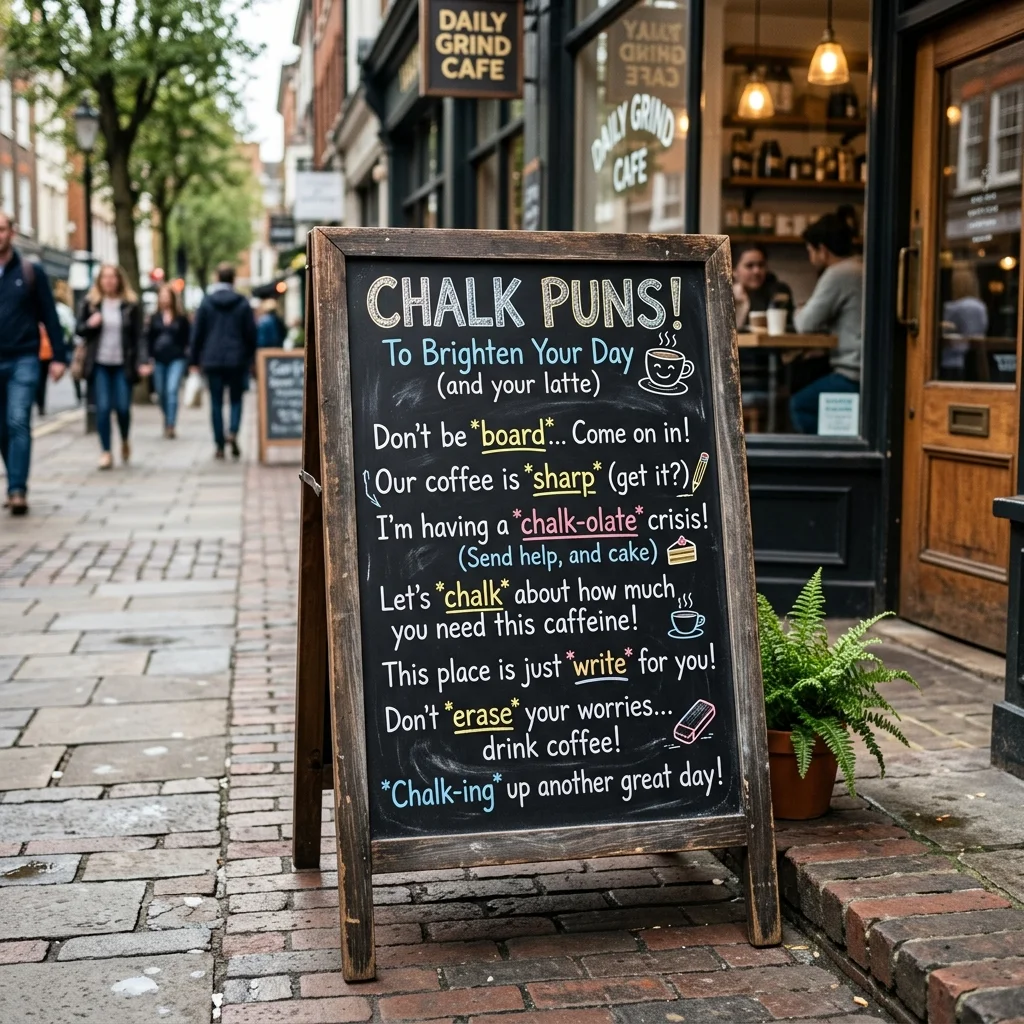 DAILY
GRIND
CAFE
DAILY GRIND
CAFE
DAILY GRIND
CAFE
CHALK PUNS!
To Brighten Your Day
(and your latte)
Don't be *board*... Come on in!
Our coffee is *sharp* (get it?)
I'm having a *chalk-olate* crisis!
(Send help, and cake)
Let's *chalk* about how much
you need this caffeine!
This place is just *write* for you!
Don't *erase* your worries...
drink coffee!
*Chalk-ing* up another great day!